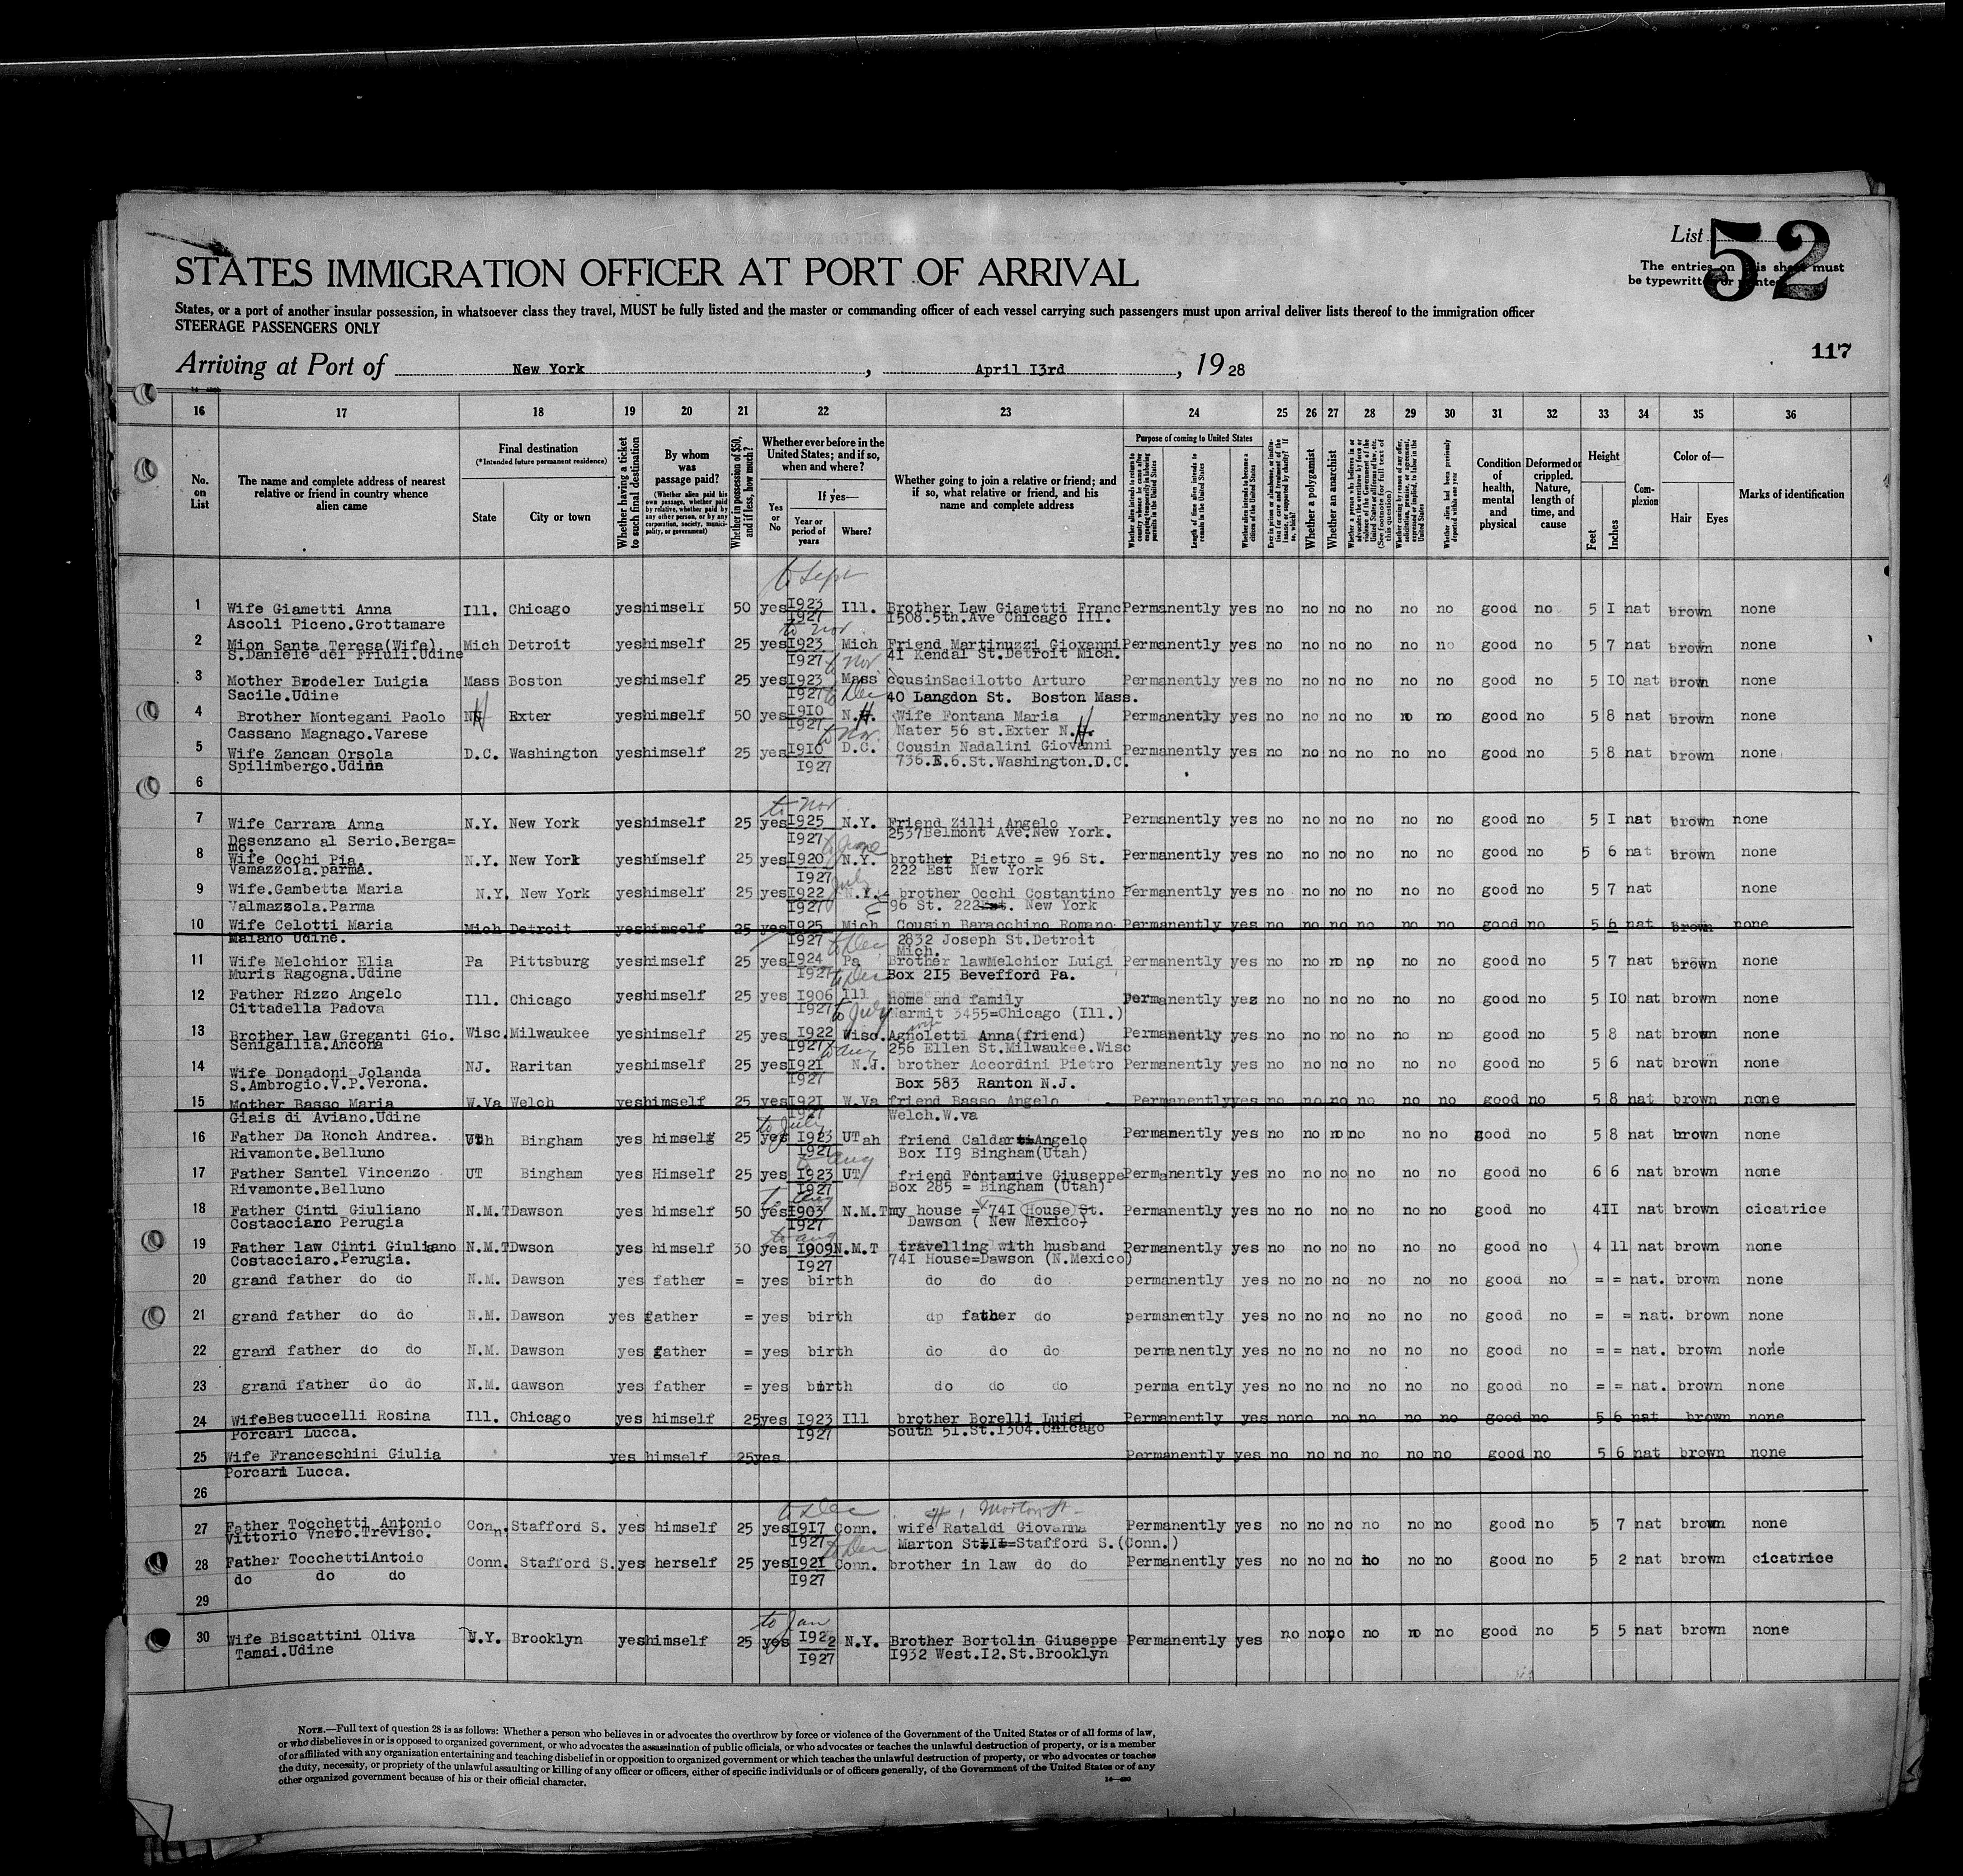 List 52
The entries on this sheet must
be typewritten or printed
STATES IMMIGRATION OFFICER AT PORT OF ARRIVAL
States, or a port of another insular possession, in whatsoever class they travel, MUST be fully listed and the master or commanding officer of each vessel carrying such passengers must upon arrival deliver lists thereof to the immigration officer
STEERAGE PASSENGERS ONLY
117
Arriving at Port of New York, April I3rd, 19 28
16 17 18 19 20 21 22 23 24 25 26 27 28 29 30 31 32 33 34 35 36
No. on List
The name and complete address of nearest relative or friend in country whence alien came
Final destination
(*Intended future permanent residence)
State
City or town
Whether having a ticket to such final destination
By whom was passage paid?
(Whether alien paid his own passage, whether paid by relative, whether paid by any other person, or by any corporation, society, municipality, or government)
Whether in possession of $50, and if less, how much?
Whether ever before in the United States; and if so, when and where?
Yes or No
If yes—
Year or period of years
Where?
Whether going to join a relative or friend; and if so, what relative or friend, and his name and complete address
Purpose of coming to United States
Length of time alien intends to remain in the United States
Whether alien intends to become a citizen of the United States
Whether a polygamist
Whether an anarchist
Condition of health, mental and physical
Deformed or crippled. Nature, length of time, and cause
Height
Feet
Inches
Complexion
Color of—
Hair
Eyes
Marks of identification
to Sept
1 Wife Giametti Anna Ill. Chicago yes himself 50 yes I923 Ill. Brother Law Giametti Franc Permanently yes no no no no no no good no 5 I nat brown none
Ascoli Piceno.Grottamare I927 I508.5th.Ave Chicago Ill.
to Nov
2 Mion Santa Teresa(Wife) Mich Detroit yes himself 25 yes I923 Mich Friend Martinuzzi Giovanni Permanently yes no no no no no no good no 5 7 nat brown none
S.Daniele del Friuli.Udine I927 4I Kendal St.Detroit Mich.
to Nov
3 Mother Brodeler Luigia Mass Boston yes himself 25 yes I923 Mass cousinSacilotto Arturo Permanently yes no no no no no no good no 5 IO nat brown none
Sacile.Udine I927 40 Langdon St. Boston Mass.
to Dec
4 Brother Montegani Paolo NH Exter yes himself 50 yes I9IO N.H. Wife Fontana Maria Permanently yes no no no no no no good no 5 8 nat brown none
Cassano Magnago.Varese I927 Nater 56 st.Exter N.H.
to Nov.
5 Wife Zancan Orsola D.C. Washington yes himself 25 yes I9IO D.C. Cousin Nadalini Giovanni Permanently yes no no no no no no good no 5 8 nat brown none
Spilimbergo.Udina I927 736.E.6.St.Washington.D.C.
6
to Nov
7 Wife Carrara Anna N.Y. New York yes himself 25 yes I925 N.Y. Friend Zilli Angelo Permanently yes no no no no no no good no 5 I nat brown none
Desenzano al Serio.Berga= I927 2537Belmont Ave.New York.
mo.
to June
8 Wife Occhi Pia. N.Y. New York yes himself 25 yes I920 N.Y. brother Pietro = 96 St. Permanently yes no no no no no no good no 5 6 nat brown none
Vamazzola.parma. I927 222 Est New York
July
9 Wife.Gambetta Maria N.Y. New York yes himself 25 yes I922 N.Y. brother Occhi Costantino Permanently yes no no no no no no good no 5 7 nat none
Valmazzola.Parma I927 96 St. 222Est. New York
10 Wife Celotti Maria Mich Detroit yes himself 25 yes I925 Mich Cousin Baracchino Romano Permanently yes no no no no no no good no 5 6 nat brown none
Maiano Udine. I927 2832 Joseph St.Detroit
Mich.
to Dec
11 Wife Melchior Elia Pa Pittsburg yes himself 25 yes I924 Pa Brother lawMelchior Luigi Permanently yes no no no no no no good no 5 7 nat brown none
Muris Ragogna.Udine I927 Box 2I5 Bevefford Pa.
to Dec
12 Father Rizzo Angelo Ill. Chicago yes himself 25 yes I906 Ill home and family Permanently yes no no no no no no good no 5 IO nat brown none
Cittadella Padova I927 Narmit 3455=Chicago (Ill.)
to July
13 Brother law Greganti Gio. Wisc. Milwaukee yes himself 25 yes I922 Wisc. Agnoletti Anna(friend) Permanently yes no no no no no no good no 5 8 nat brown none
Senigallia.Ancona I927 256 Ellen St.Milwaukee.Wisc
to Aug
14 Wife Donadoni Jolanda NJ. Raritan yes himself 25 yes I92I N.J. brother Accordini Pietro Permanently yes no no no no no no good no 5 6 nat brown none
S.Ambrogio.V.P.Verona. I927 Box 583 Ranton N.J.
15 Mother Basso Maria W.Va Welch yes himself 25 yes I92I W.Va friend Basso Angelo Permanently yes no no no no no no good no 5 8 nat brown none
Giais di Aviano.Udine I927 Welch.W.va
to July
16 Father Da Ronch Andrea. UTh Bingham yes himself 25 yes I923 UTah friend CaldartiAngelo Permanently yes no no no no no no good no 5 8 nat brown none
Rivamonte.Belluno I927 Box II9 Bingham(Utah)
to Aug
17 Father Santel Vincenzo UT Bingham yes Himself 25 yes I923 UT friend Fontanive Giuseppe Permanently yes no no no no no no good no 6 6 nat brown none
Rivamonte.Belluno I927 Box 285 = Bingham (Utah)
to Aug
18 Father Cinti Giuliano N.M.T Dawson yes himself 50 yes I903 N.M.T my house = 74I House St. Permanently yes no no no no no no good no 4 II nat brown cicatrice
Costacciaro Perugia I927 Dawson ( New Mexico)
to aug
19 Father law Cinti Giuliano N.M.T Dwson yes himself 30 yes I909 N.M.T travelling with husband Permanently yes no no no no no no good no 4 11 nat brown none
Costacciaro.Perugia. I927 74I House=Dawson (N.Mexico)
20 grand father do do N.M. Dawson yes father = yes birth do do do permanently yes no no no no no no good no = = nat. brown none
21 grand father do do N.M. Dawson yes father = yes birth do father do permanently yes no no no no no no good no = = nat. brown none
22 grand father do do N.M. Dawson yes father = yes birth do do do permanently yes no no no no no no good no = = nat. brown none
23 grand father do do N.M. dawson yes father = yes birth do do do perma ently yes no no no no no no good no = = nat. brown none
24 WifeBestuccelli Rosina Ill. Chicago yes himself 25 yes I923 Ill brother Borelli Luigi Permanently yes no no no no no no good no 5 6 nat brown none
Porcari Lucca. I927 South 5I.St.I304.Chicago
25 Wife Franceschini Giulia yes himself 25 yes Permanently yes no no no no no no good no 5 6 nat brown none
Porcari Lucca.
26
to Dec Morton St
27 Father Tocchetti Antonio Conn. Stafford S. yes himself 25 yes I9I7 Conn. wife Rataldi Giovanna Permanently yes no no no no no no good no 5 7 nat brown none
Vittorio Vneto.Treviso. I927 Marton StIII=Stafford S.(Conn.)
to Dec
28 Father TocchettiAntoio Conn. Stafford S. yes herself 25 yes I92I Conn. brother in law do do Permanently yes no no no no no no good no 5 2 nat brown cicatrice
do do do I927
29
to Jan
30 Wife Biscattini Oliva N.Y. Brooklyn yes himself 25 yes I922 N.Y. Brother Bortolin Giuseppe Permanently yes no no no no no no good no 5 5 nat brown none
Tamai.Udine I927 I932 West.I2.St.Brooklyn
NOTE.—Full text of question 28 is as follows: Whether a person who believes in or advocates the overthrow by force or violence of the Government of the United States or of all forms of law,
or who disbelieves in or is opposed to organized government, or who advocates the assassination of public officials, or who advocates or teaches the unlawful destruction of property, or is a member
of or affiliated with any organization entertaining and teaching disbelief in or opposition to organized government or which teaches the unlawful destruction of property, or who advocates or teaches
the duty, necessity, or propriety of the unlawful assaulting or killing of any officer or officers, either of specific individuals or of officers generally, of the Government of the United States or of any
other organized government because of his or their official character.